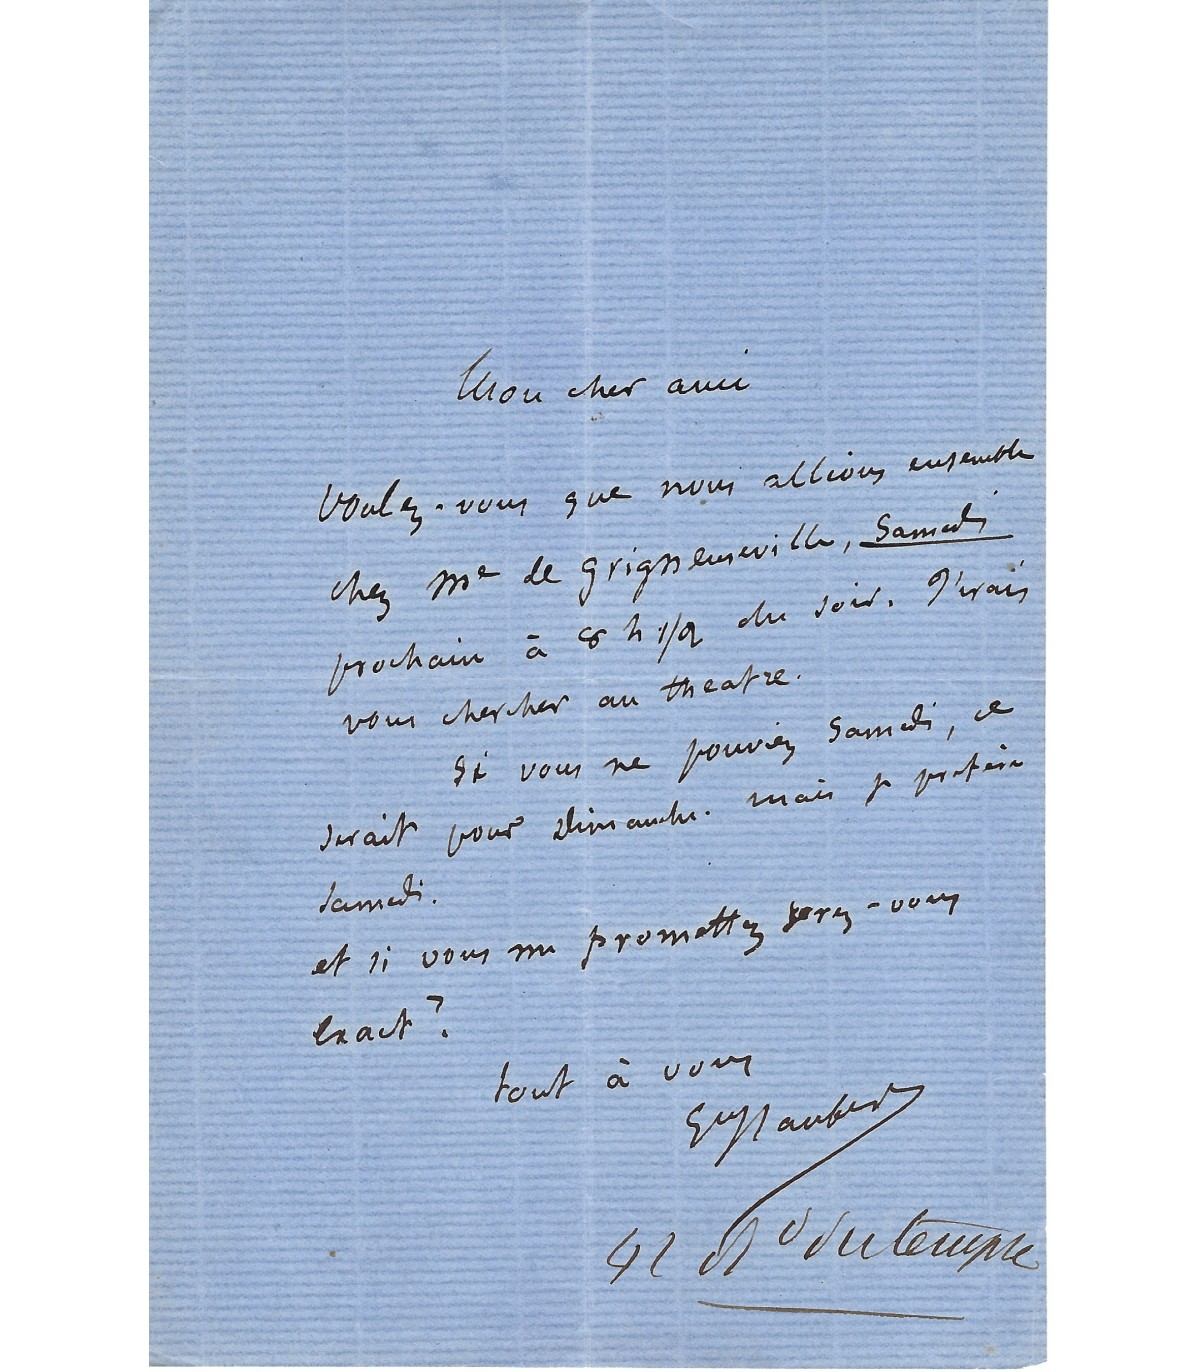 Mon cher ami
Voulez-vous que nous allions ensemble
chez Me de Grigneuseville, Samedi
prochain à 8 h 1/2 du soir. J'irais
vous chercher au theatre.
Si vous ne pouviez Samedi, ce
serait pour Dimanche. mais je préfère
samedi.
et si vous me promettez serez-vous
exact?
tout à vous
Gve Flaubert
42 Bd du temple